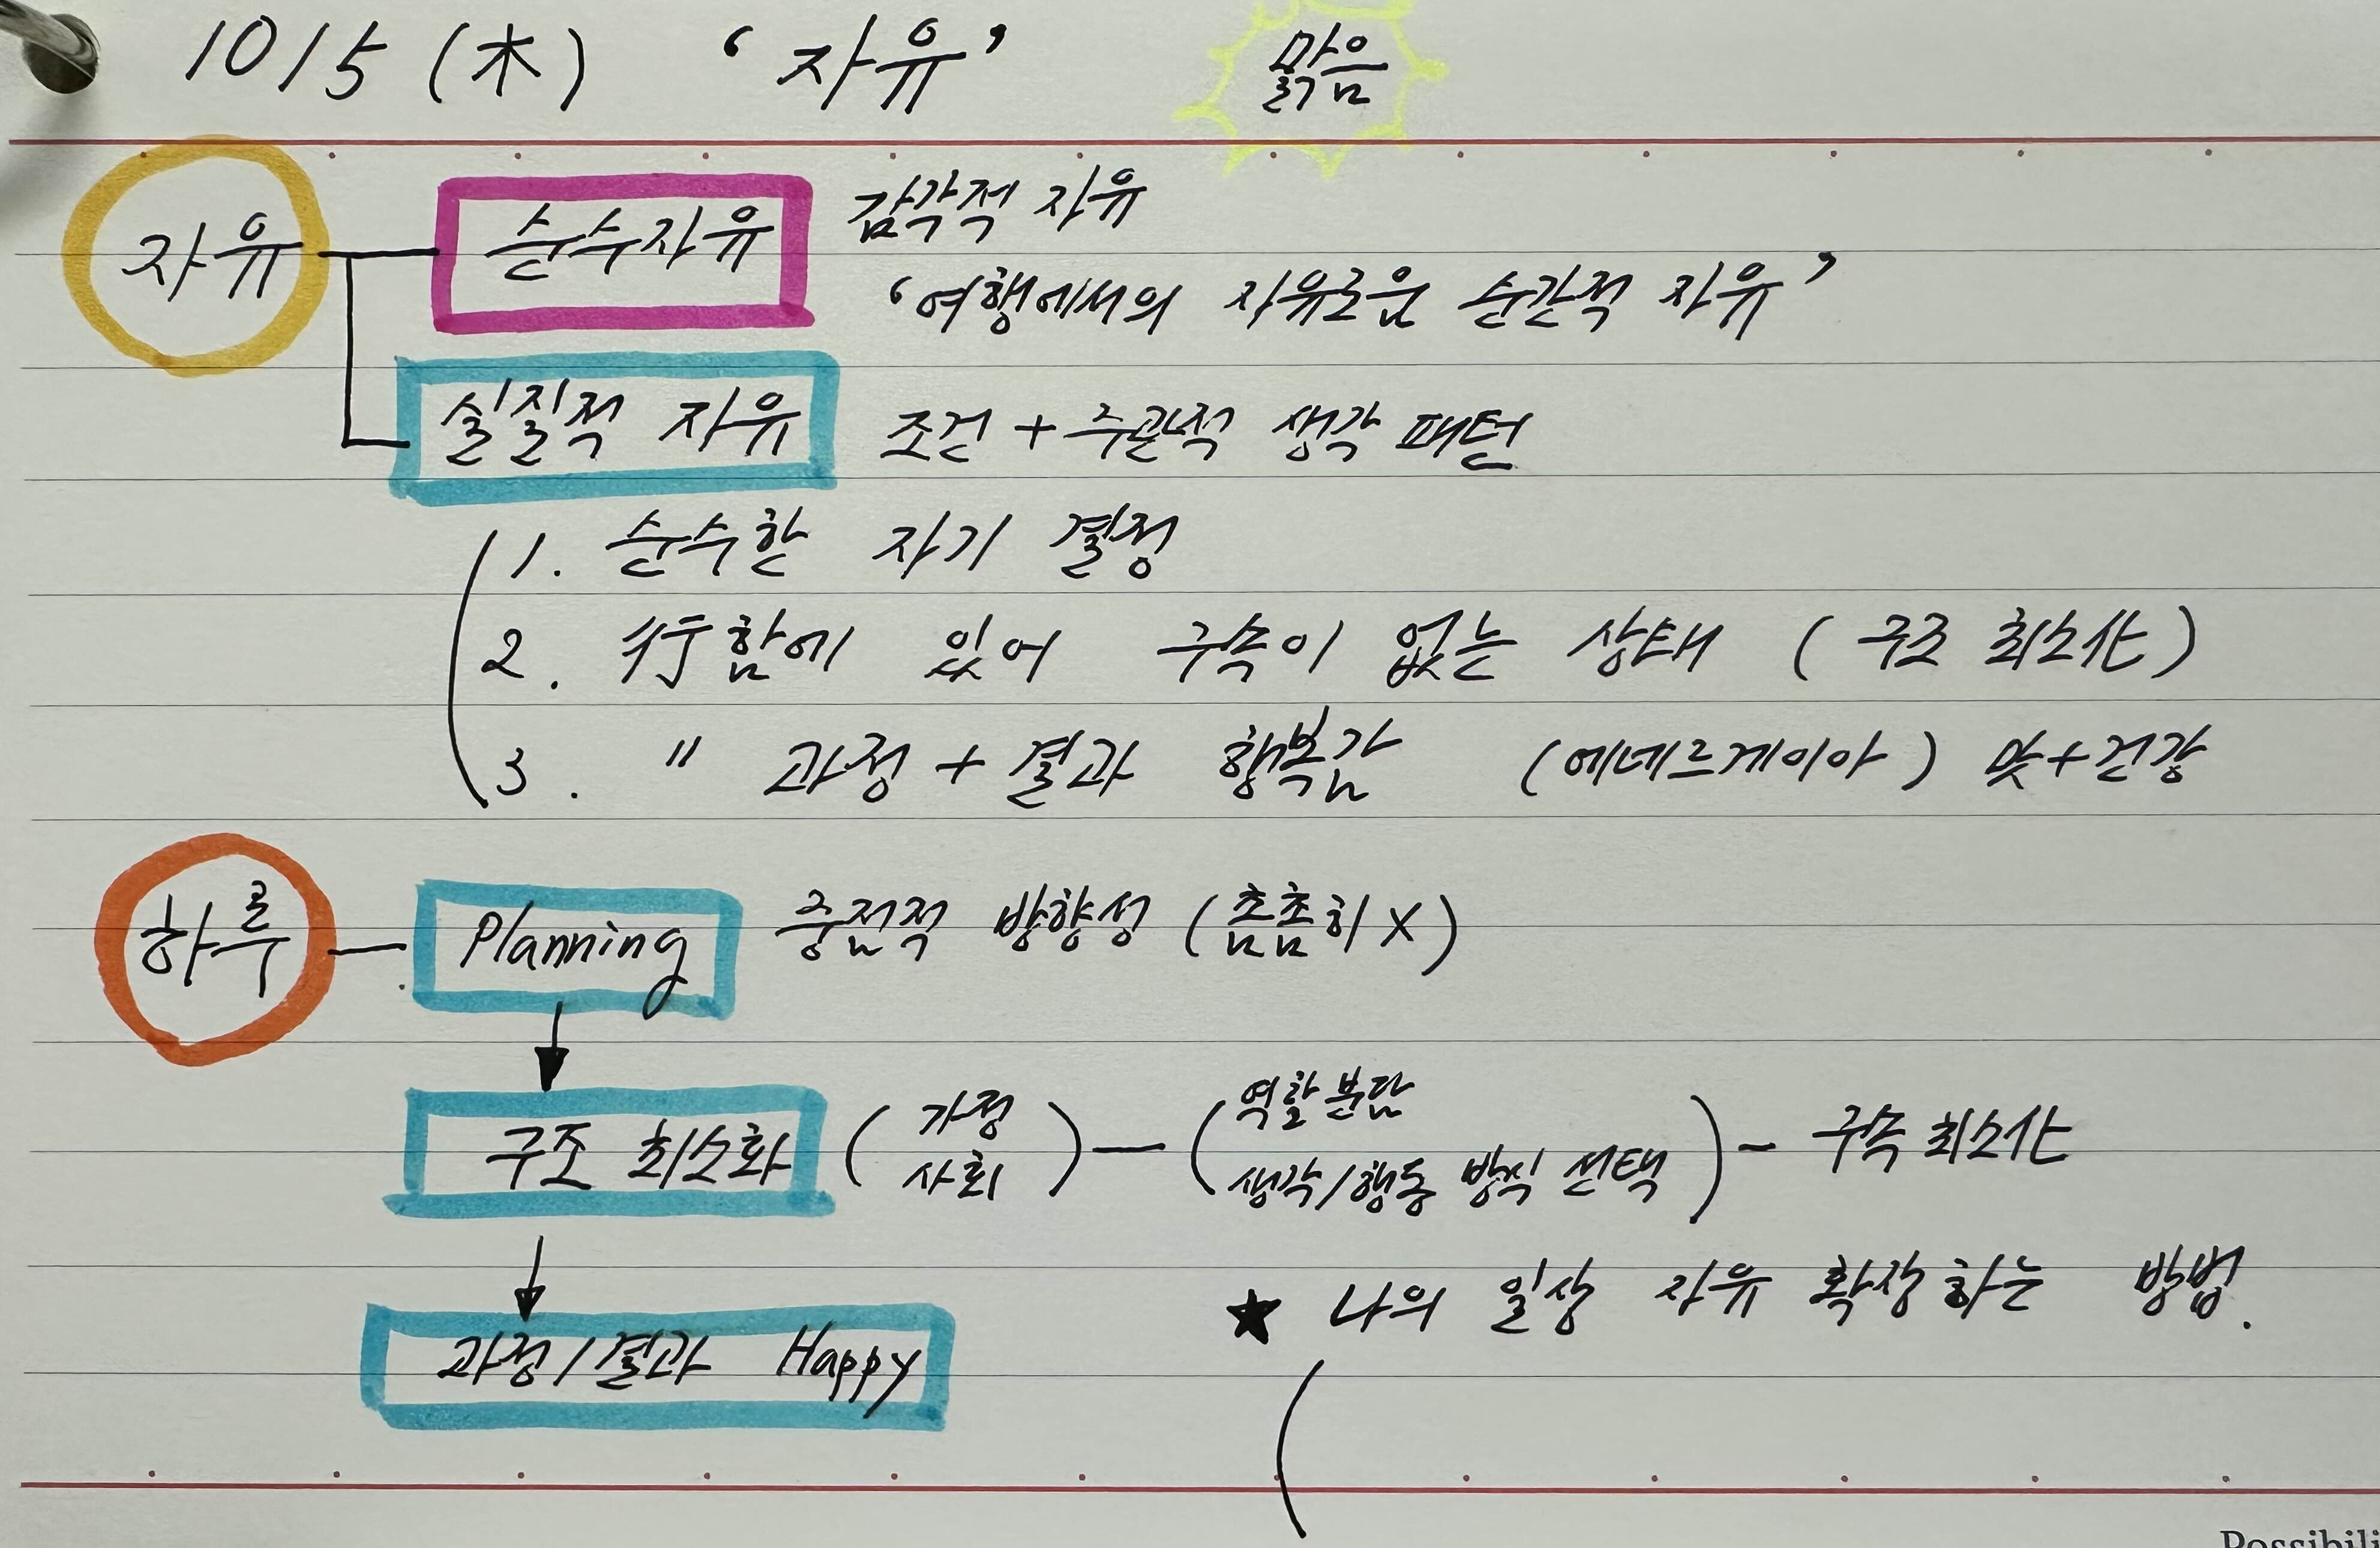 10/5 (木) ‘자유’ 맑음
자유 순수자유 감각적 자유
‘여행에서의 자유로운 순간적 자유’
실질적 자유 조건 + 주관적 생각 패턴
1. 순수한 자기 결정
2. 行함에 있어 구속이 없는 상태 (구조 최소化)
3. 〃 과정 + 결과 행복감 (에네르게이아) 맛+건강
하루 Planning 중점적 방향성 (촘촘히 X)
구조 최소화 (가정 사회) — (역할분담 생각/행동 방식 선택) - 구속 최소化
★ 나의 일상 자유 확장하는 방법.
과정/결과 Happy
Possibili